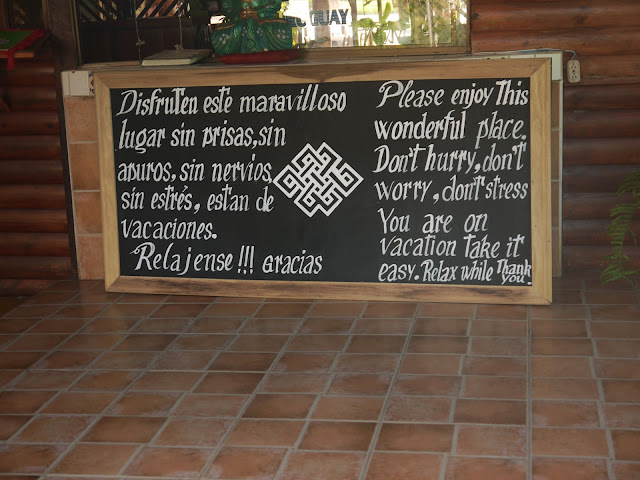 QUAY
Disfruten este maravilloso
lugar sin prisas, sin
apuros, sin nervios
sin estrés, estan de
vacaciones.
Relajense !!! Gracias
Please enjoy This
wonderful place.
Don't hurry, don't
worry, don't stress
You are on
vacation take it
easy. Relax while Thank
you.